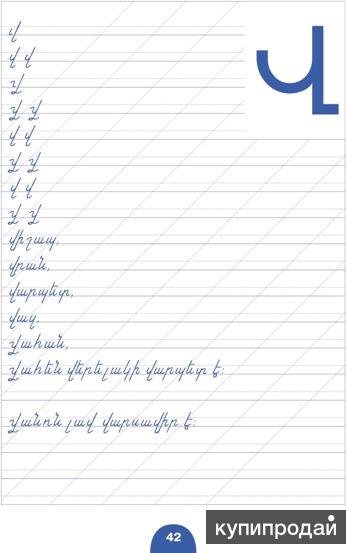 Վ
վ
վ վ
Վ
Վ Վ
վ վ
Վ Վ
վ վ
Վ Վ
վիշապ,
վրան,
վարպետ,
վազ,
Վահան,
Վահեն վերելակի վարպետ է։
Վանոն լավ վարսավիր է։
42
купипродай